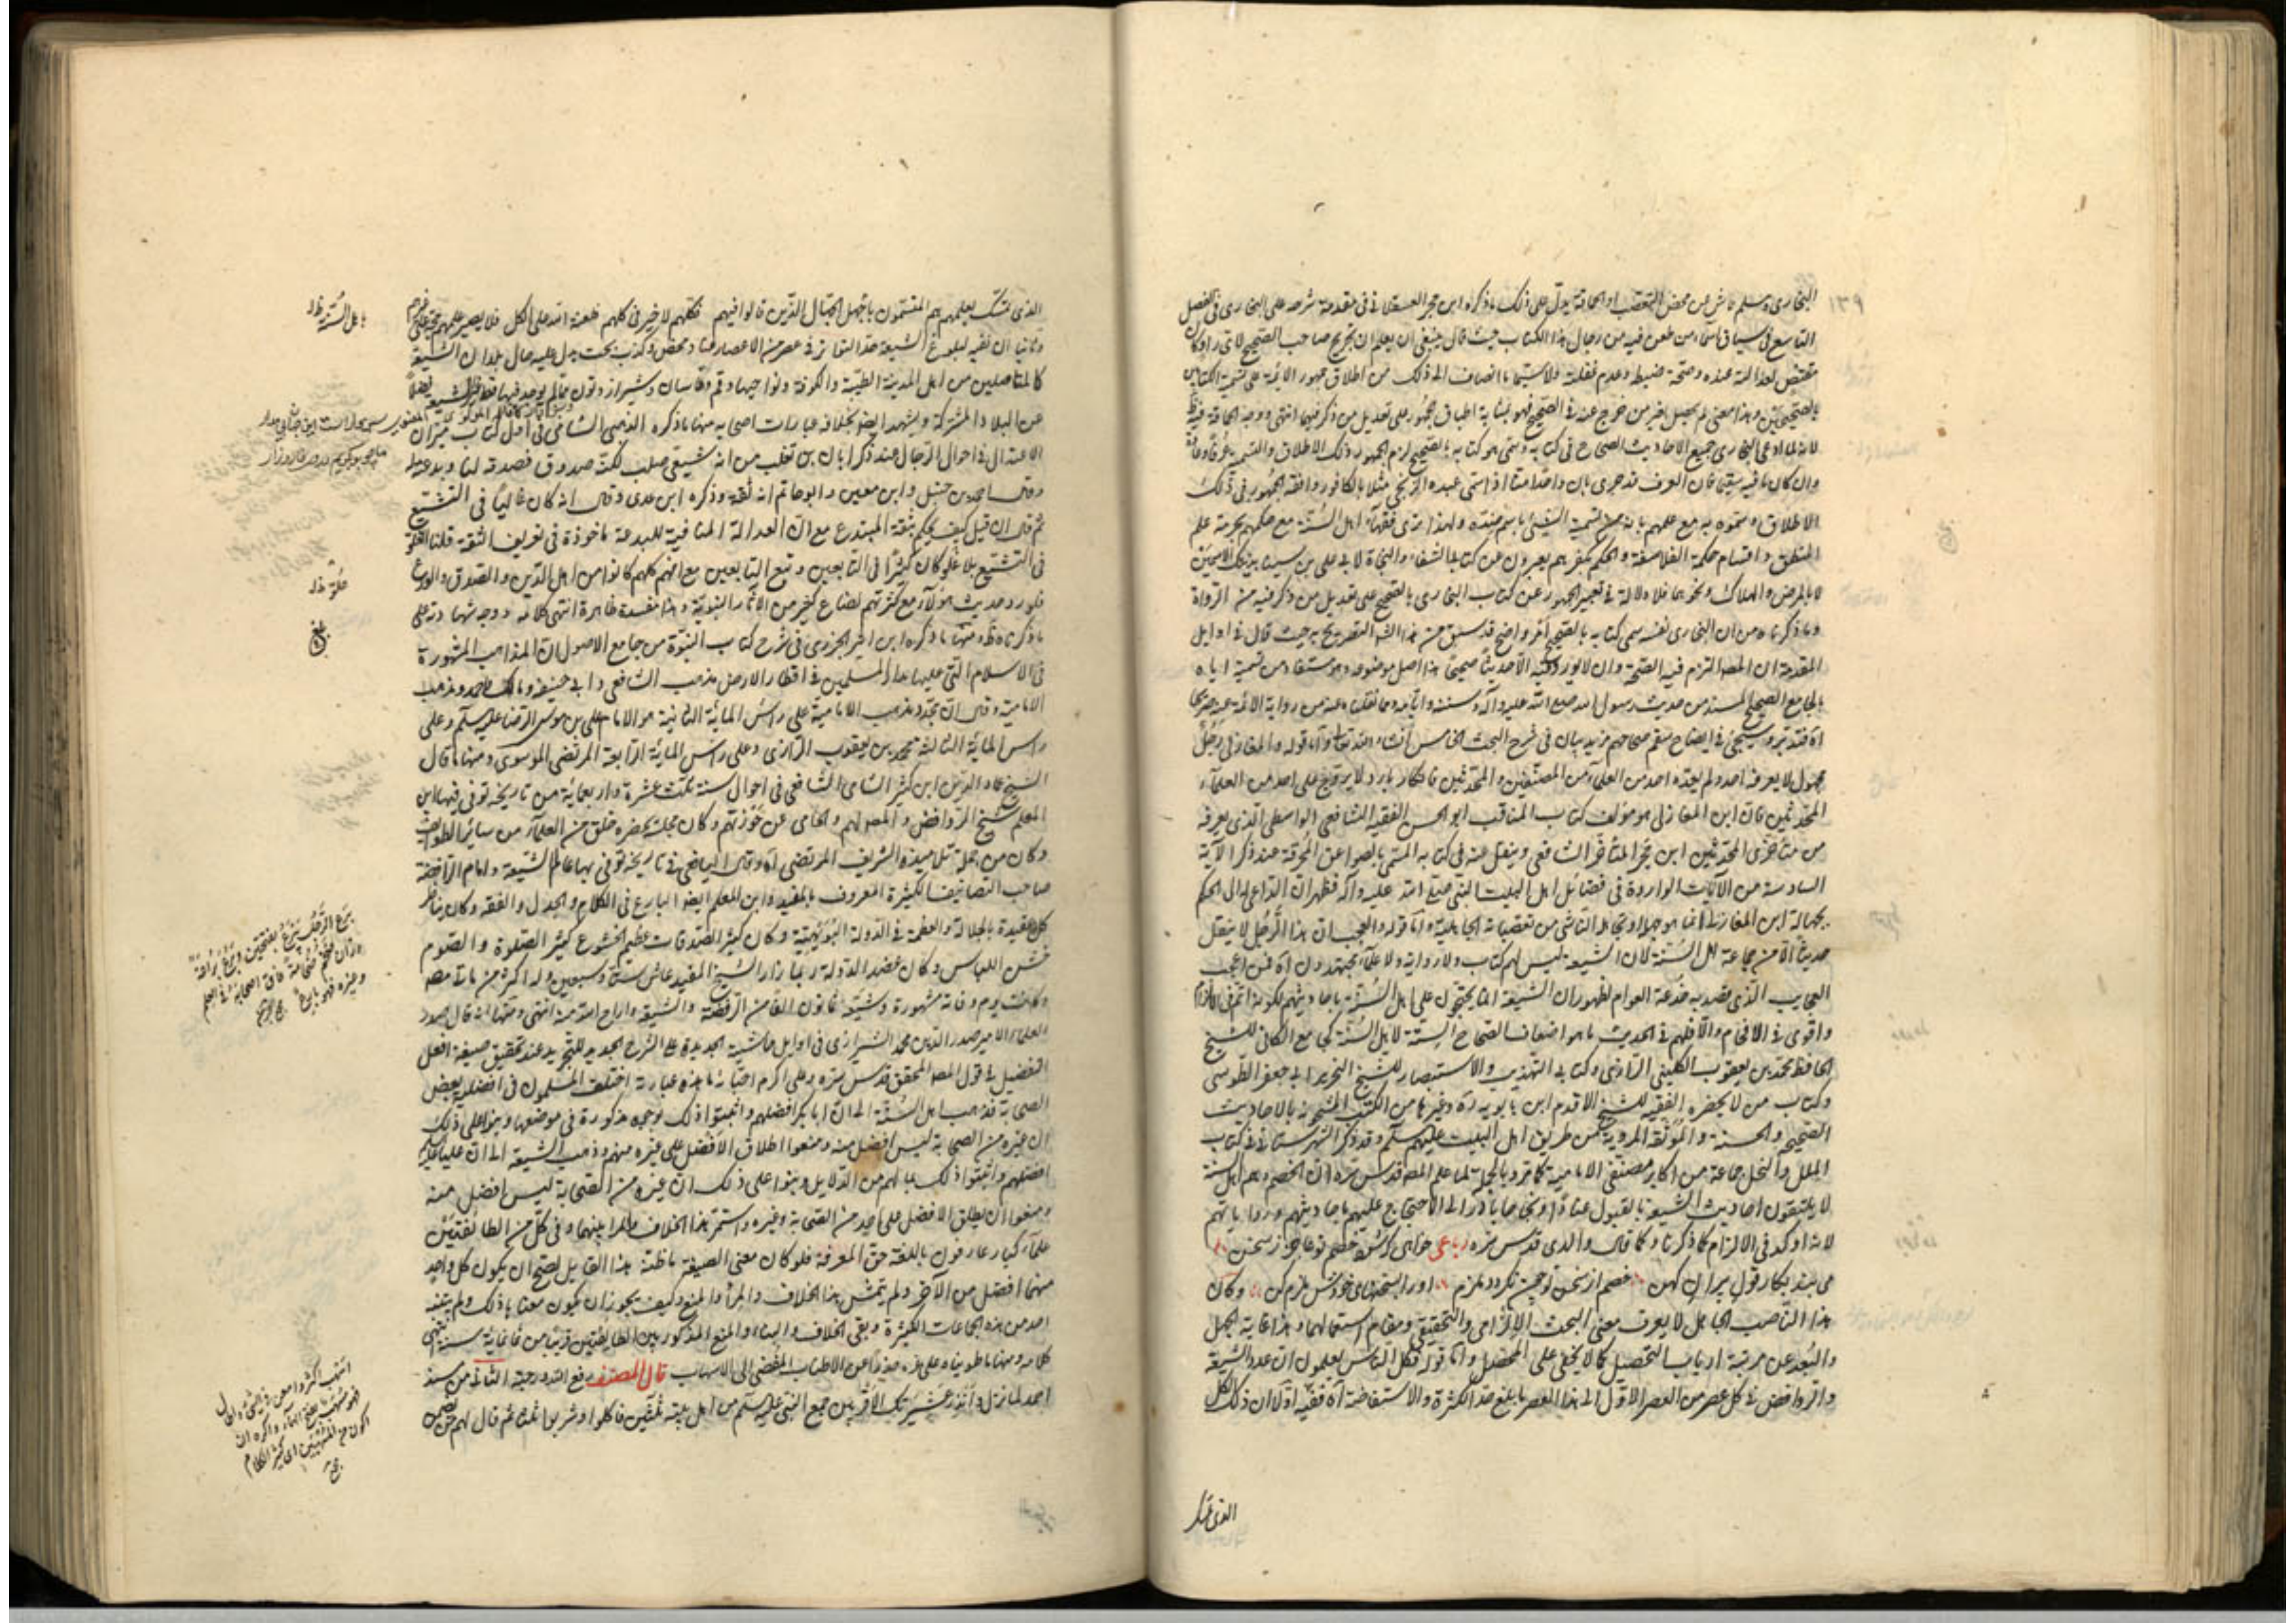 ١٣٩
البخاري ومسلم ناش عن محض التعصب او الحماقة يدل على ذلك ما ذكره ابن حجر العسقلاني في مقدمة شرحه على البخاري في الفصل
التاسع في سياق اسماء من طعن فيه من رجال هذا الكتاب حيث قال ينبغي ان يعلم ان تخريج صاحب الصحيح لاي راو كان
مقتض لعدالته عنده وصحة ضبطه وعدم غفلته ولا سيما ما انضاف الى ذلك من اطلاق جمهور الائمة على تسمية الكتابين
بالصحيحين وهذا معنى لم يحصل لغير من خرج عنه في الصحيح فهو بمثابة اطباق الجمهور على تعديل من ذكر فيهما انتهى ووجه الحماقة فيه
لانه لما ادعى البخاري جميع الاحاديث الصحاح في كتابه وسمى هو كتابه بالصحيح لزم الجمهور ذلك الاطلاق والتسمية
وان كان ما فيه سقيما فان العرف قد جرى بان واحدا منا اذا سمى عبده الزنجي مثلا بالكافور وافقه الجمهور في ذلك
الاطلاق وسموه به مع علمهم بانه من تسمية الشيء باسم ضده ولهذا ترى فقهاء اهل السنة مع حكمهم بحرمة علم
المنطق واقسام حكمة الفلاسفة والحكم بكفرهم يعبرون عن كتاب الشفاء والنجاة لابي علي بن سينا بذينك الاسمين
لا بالمرض والهلاك ونحوهما فلا دلالة في تعبير الجمهور عن كتاب البخاري بالصحيح على تعديل من ذكر فيه من الرواة
وما ذكرناه من ان البخاري نفسه سمى كتابه بالصحيح امر واضح قد سبق من هذا الشارح التصريح به حيث قال في اوايل
المقدمة ان المص التزم فيه الصحة وان لا يورد فيه الا حديثا صحيحا هذا اصل موضوعه وهو مستفاد من تسمية اياه
بالجامع الصحيح المسند من حديث رسول الله صلى الله عليه وآله وسننه وايامه ومما نقلناه عنه من رواية الائمة عنه صريحا
اه فتدبر وسيجيء في ايضاح سقم صحاحهم مزيد بيان في شرح البحث الخامس ان شاء الله تعالى واما قوله والمغازلي رجل
مجهول لا يعرفه احد ولم يعده احد من العلماء من المصنفين والمحدثين فانكار بارد لا يروج على احد من العلماء
المحدثين فان ابن المغازلي هو مؤلف كتاب المناقب ابو الحسن الفقيه الشافعي الواسطي الذي يعرفه
من متأخري المحدثين ابن حجر المتأخر الشافعي وينقل عنه في كتابه المسمى بالصواعق المحرقة عند ذكر الآية
السادسة من الآيات الواردة في فضائل اهل البيت النبي صلى الله عليه وآله فظهر ان الداعي له الى الحكم
بجهالة ابن المغازلي انما هو جهله او تجاهله الناشي من تعصباته الجاهلية واما قوله والعجب ان هذا الرجل لا ينقل
حديثا الا من جماعة اهل السنة لان الشيعة ليس لهم كتاب ولا رواية ولا علماء مجتهدون اه فمن اعجب
العجايب الذي يقصد به خدعة العوام لظهور ان الشيعة انما يحتجون على اهل السنة باحاديثهم لكونه اتم في الالزام
واقوى في الافحام والا فلهم في الحديث ما هو اضعاف الصحاح الستة لاهل السنة كجامع الكافي للشيخ
الحافظ محمد بن يعقوب الكليني الرازي وكتابي التهذيب والاستبصار للشيخ النحرير ابي جعفر الطوسي
وكتاب من لا يحضره الفقيه للشيخ الاقدم ابن بابويه ره وغيرها من الكتب المشحونة بالاحاديث
الصحيحة والحسنة والموثقة المروية عن طريق اهل البيت عليهم السلام وقد ذكر الشهرستاني في كتاب
الملل والنحل جماعة من اكابر مصنفي الامامية كما مر وبالجملة لما علم المص قدس سره ان الخصم وهم اهل السنة
لا يتلقون احاديث الشيعة بالقبول عنادا ولجاجا بادر الى الاحتجاج عليهم باحاديثهم ورواياتهم
لانه اوكد في الالزام كما ذكرنا وكما قال والدي قدس سره رباعي خواهى كه شود خصم تو عاجز ز سخن
مى بند بكار قول پيران كهن خصم از سخن تو چون نگردد ملزم او را بسخنهاى خودش ملزم كن وكان
هذا الناصب الجاهل لا يعرف معنى البحث الالزامي والتحقيقي ومقام استعمالهما وهذا غاية الجهل
والبعد عن مرتبة ارباب التحصيل كما لا يخفى على المحصل واما قوله فكل الناس يعلمون ان عدد الشيعة
والروافض في كل عصر من العصر الاول الى هذا العصر ما بلغ حد الكثرة والاستفاضة اه ففيه اولا ان ذلك الكل
الذي تمسك
الذي تمسك بعلمهم هم المتسمون باجهل الجهال الذين قالوا فيهم فكلهم لا خير في كلهم فلعنة الله على الكل فلا يصير علمهم حجة على غيرهم
وثانيا ان نفيه لبلوغ الشيعة حد التواتر في عصر من الاعصار عناد محض وكذب بحت يدل عليه حال بلدان الشيعة
كالمتاصلين من اهل المدينة الطيبة والكوفة ونواحيها وقم وقاسان وشيراز وتون مما لم يوجد فيها قط غير الشيعة فضلا
عن البلاد المشتركة ويشهد ايضا بخلافه عبارات اصحابه منها ما ذكره الذهبي الشامي في اول كتاب ميزان
الاعتدال في احوال الرجال عند ذكر ابان بن تغلب من انه شيعي صلب لكنه صدوق فصدقه لنا وبدعته عليه
وقال احمد بن حنبل وابن معين وابو حاتم انه ثقة وذكره ابن عدى وقال انه كان غاليا في التشيع
ثم قال ان قيل كيف يحكم بثقة المبتدع مع ان العدالة المنافية للبدعة ماخوذة في تعريف الثقة قلنا الغلو
في التشيع بلا غلو كان كثيرا في التابعين وتبع التابعين مع انهم كلهم كانوا من اهل الدين والصدق والورع
فلو رد حديث هؤلاء مع كثرتهم لضاع كثير من الآثار النبوية وهذا مفسدة ظاهرة انتهى كلامه ووجه شهادته على
ما ذكرناه ظ ومنها ما ذكره ابن اثير الجزري في شرح كتاب النبوة من جامع الاصول ان المذاهب المشهورة
في الاسلام التي عليها مدار المسلمين في اقطار الارض مذهب الشافعي وابي حنيفة ومالك واحمد ومذهب
الامامية وقال ان مجدد مذهب الامامية على راس المائة الثانية هو الامام علي بن موسى الرضا عليه السلام وعلى
راس المائة الثالثة محمد بن يعقوب الرازي وعلى راس المائة الرابعة المرتضى الموسوي ومنها ما قال
الشيخ عماد الدين ابن كثير الشامي الشافعي في احوال سنة ثلث عشرة واربعمائة من تاريخه توفي فيها ابن
المعلم شيخ الروافض والمصنف لهم والحامي عن حوزتهم وكان مجلسه يحضره خلق من العلماء من سائر الطوائف
وكان من جملة تلاميذه الشريف المرتضى اه وقال اليافعي في تاريخه توفي بها عالم الشيعة وامام الرافضة
صاحب التصانيف الكثيرة المعروف بالمفيد وابن المعلم ايضا البارع في الكلام والجدل والفقه وكان يناظر
كل عقيدة بالجلالة والعظمة في الدولة البويهية وكان كثير الصدقات عظيم الخشوع كثير الصلوة والصوم
خشن اللباس وكان عضد الدولة ربما زار الشيخ المفيد عاش ستا وسبعين وله اكثر من مائة مصنف
وكانت يوم وفاته مشهورة وشيعه ثمانون الفا من الرافضة والشيعة واراح الله منه انتهى ومنها انه قال صدر
العلماء الامير صدر الدين محمد الشيرازي في اوايل حاشيته الجديدة على الشرح الجديد للتجريد عند تحقيق صيغة افعل
التفضيل في قول المص المحقق قدس سره وعلى اكرم احبائه ما هذه عبارته اختلف المسلمون في افضلية بعض
الصحابة فذهب اهل السنة الى ان ابا بكر افضلهم واثبتوا ذلك بوجوه مذكورة في موضعها وبنوا على ذلك
ان غيره من الصحابة ليس افضل منه ومنعوا اطلاق الافضل على غيره منهم وذهب الشيعة الى ان عليا عليه السلام
افضلهم واثبتوا ذلك بما لهم من الدلايل وبنوا على ذلك ان غيره من الصحابة ليس افضل منه
ومنعوا ان يطلق الافضل على احد من الصحابة وغيره واستمر هذا الخلاف والمراء بينهما وفي كل من الطائفتين
علماء كبار عارفون باللغة حق المعرفة فلو كان معنى الصيغة ما ظنه هذا القايل لصح ان يكون كل واحد
منهما افضل من الآخر ولم يتمش هذا الخلاف والمراء والمنع وكيف يجوز ان يكون معناها ذلك ولم يتنبه
احد من هذه الجماعات الكثيرة وبقي الخلاف والبناء والمنع المذكور بين الطايفتين قريبا من ثمانمائة سنة انتهى
كلامه ومنها ما طويناه على غره حذرا عن الاطناب المفضي الى الاسهاب قال المصنف رفع الله درجته الثاني من مسند
احمد لما نزل وانذر عشيرتك الاقربين جمع النبي عليه السلام من اهل بيته ثلثين فاكلوا وشربوا ثلثا ثم قال لهم من يضمن
باهل السنة ظ
علوه ظ
بلغ
برع الرجل برع بفتحتين وبرع براعة
وزان ضخم ضخامة فاق اصحابه في العلم
وغيره فهو بارع